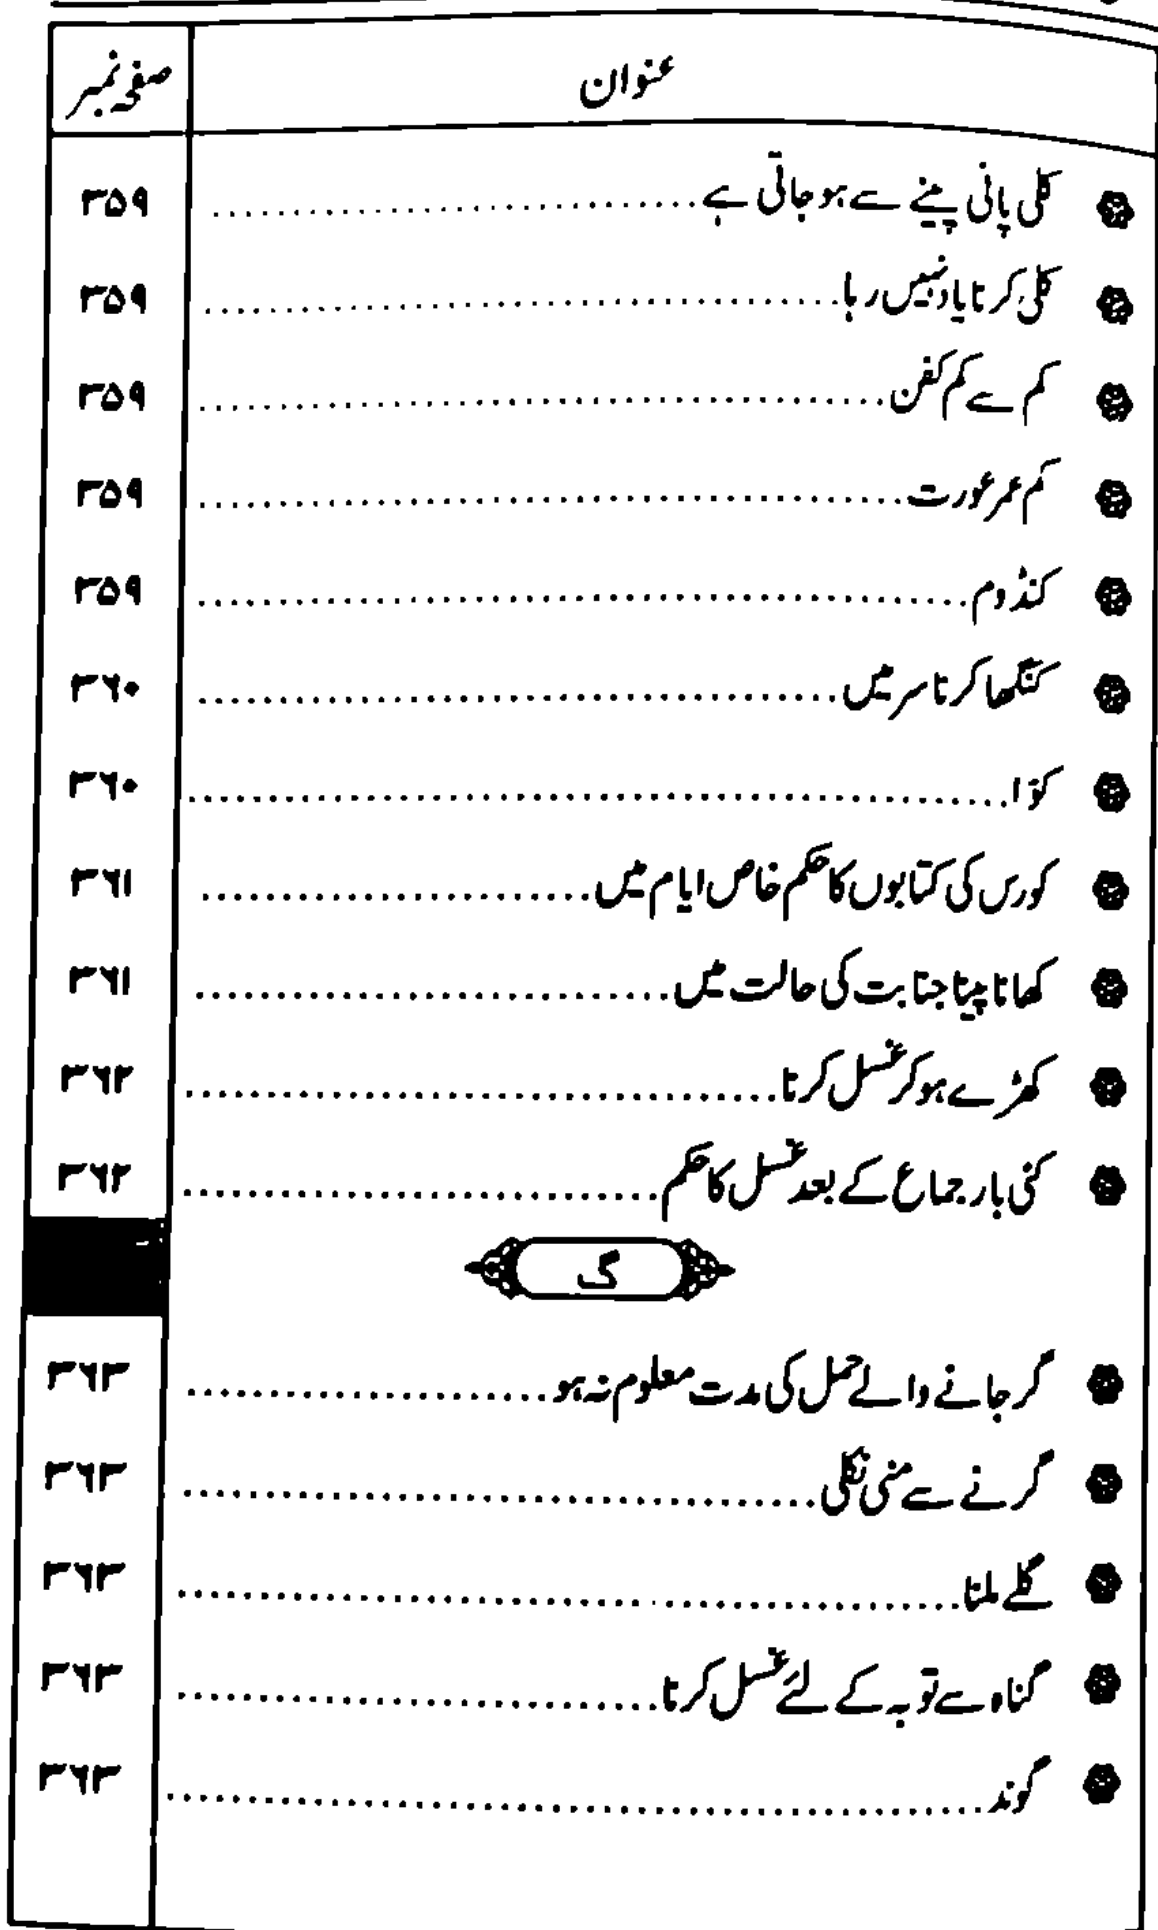 عنوان صفحہ نمبر
کلی پانی پینے سے ہوجاتی ہے ۳۵۹
کلی کرنا یاد نہیں رہا ۳۵۹
کم سے کم کفن ۳۵۹
کم عمر عورت ۳۵۹
کنڈوم ۳۵۹
کنگھا کرنا سر میں ۳۶۰
کوّا ۳۶۰
کورس کی کتابوں کا حکم خاص ایام میں ۳۶۱
کھانا پینا جنابت کی حالت میں ۳۶۱
کھڑے ہوکر غسل کرنا ۳۶۲
کئی بار جماع کے بعد غسل کا حکم ۳۶۲
گ
گر جانے والے حمل کی مدت معلوم نہ ہو ۳۶۳
گرنے سے منی نکلی ۳۶۳
گلے ملنا ۳۶۳
گناہ سے توبہ کے لئے غسل کرنا ۳۶۳
گوند ۳۶۳